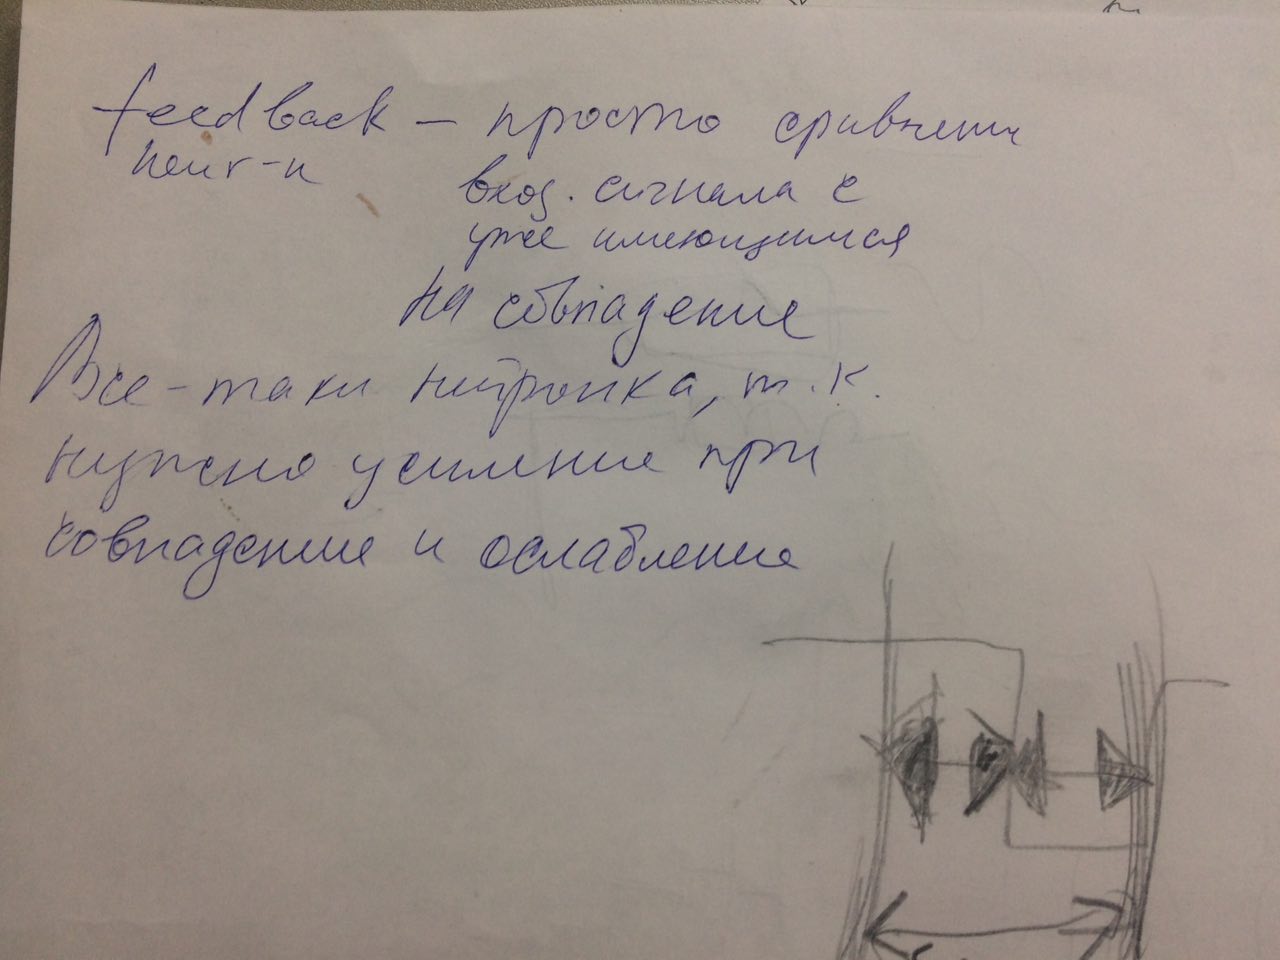 feedback — просто сравнение
вход. сигнала с
уже имеющимся
на совпадение
Все-таки нейронка, т.к.
нужно усиление при
совпадении и ослабление